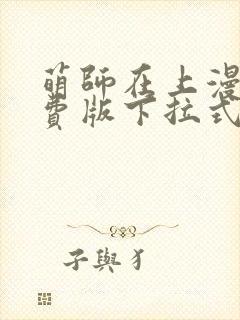 萌師在上漫
費版下拉式
子與犭